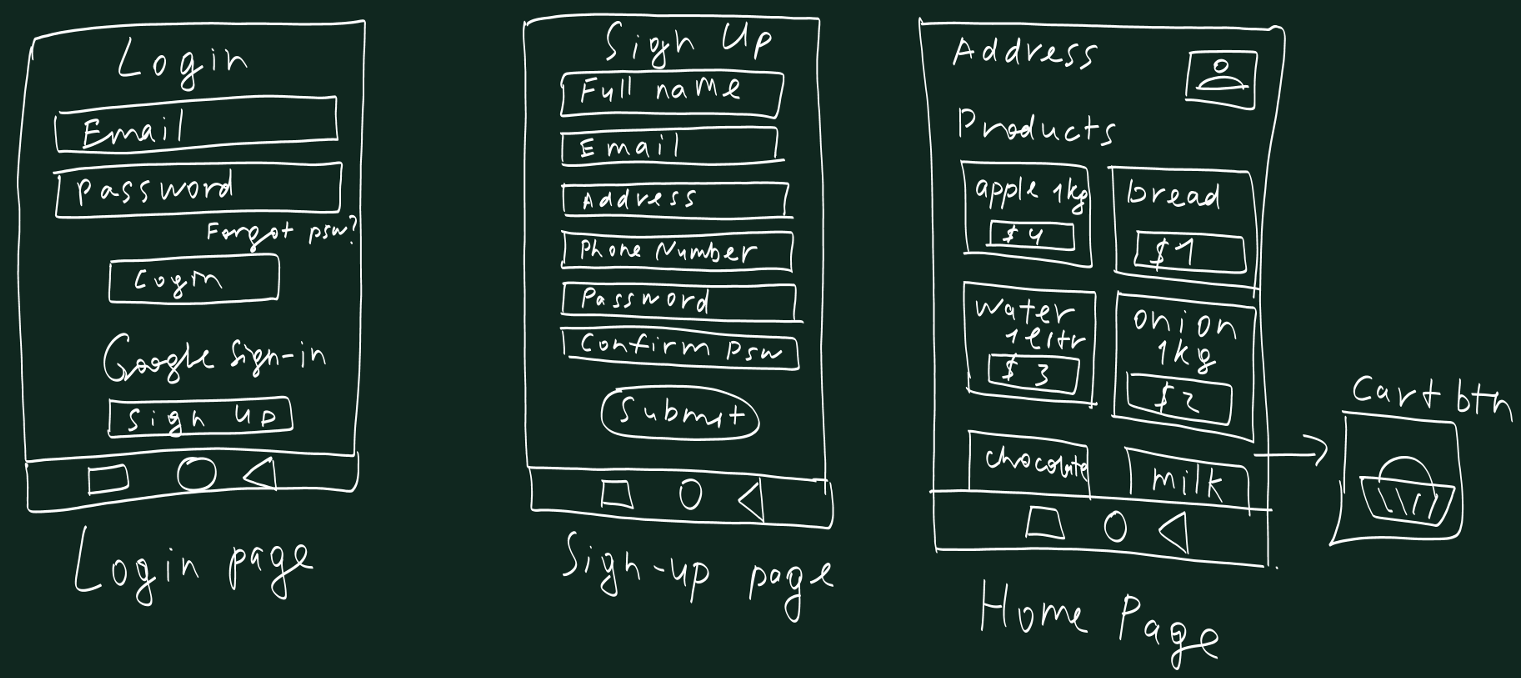 Login
Email
Password
Forgot psw?
Login
Google Sign-in
Sign Up
Login page
Sign Up
Full name
Email
Address
Phone Number
Password
Confirm psw
Submit
Sign-up page
Address
Products
apple 1kg
$4
bread
$1
water
1 litr
$3
onion
1kg
$2
chocolate
milk
Home Page
Cart btn